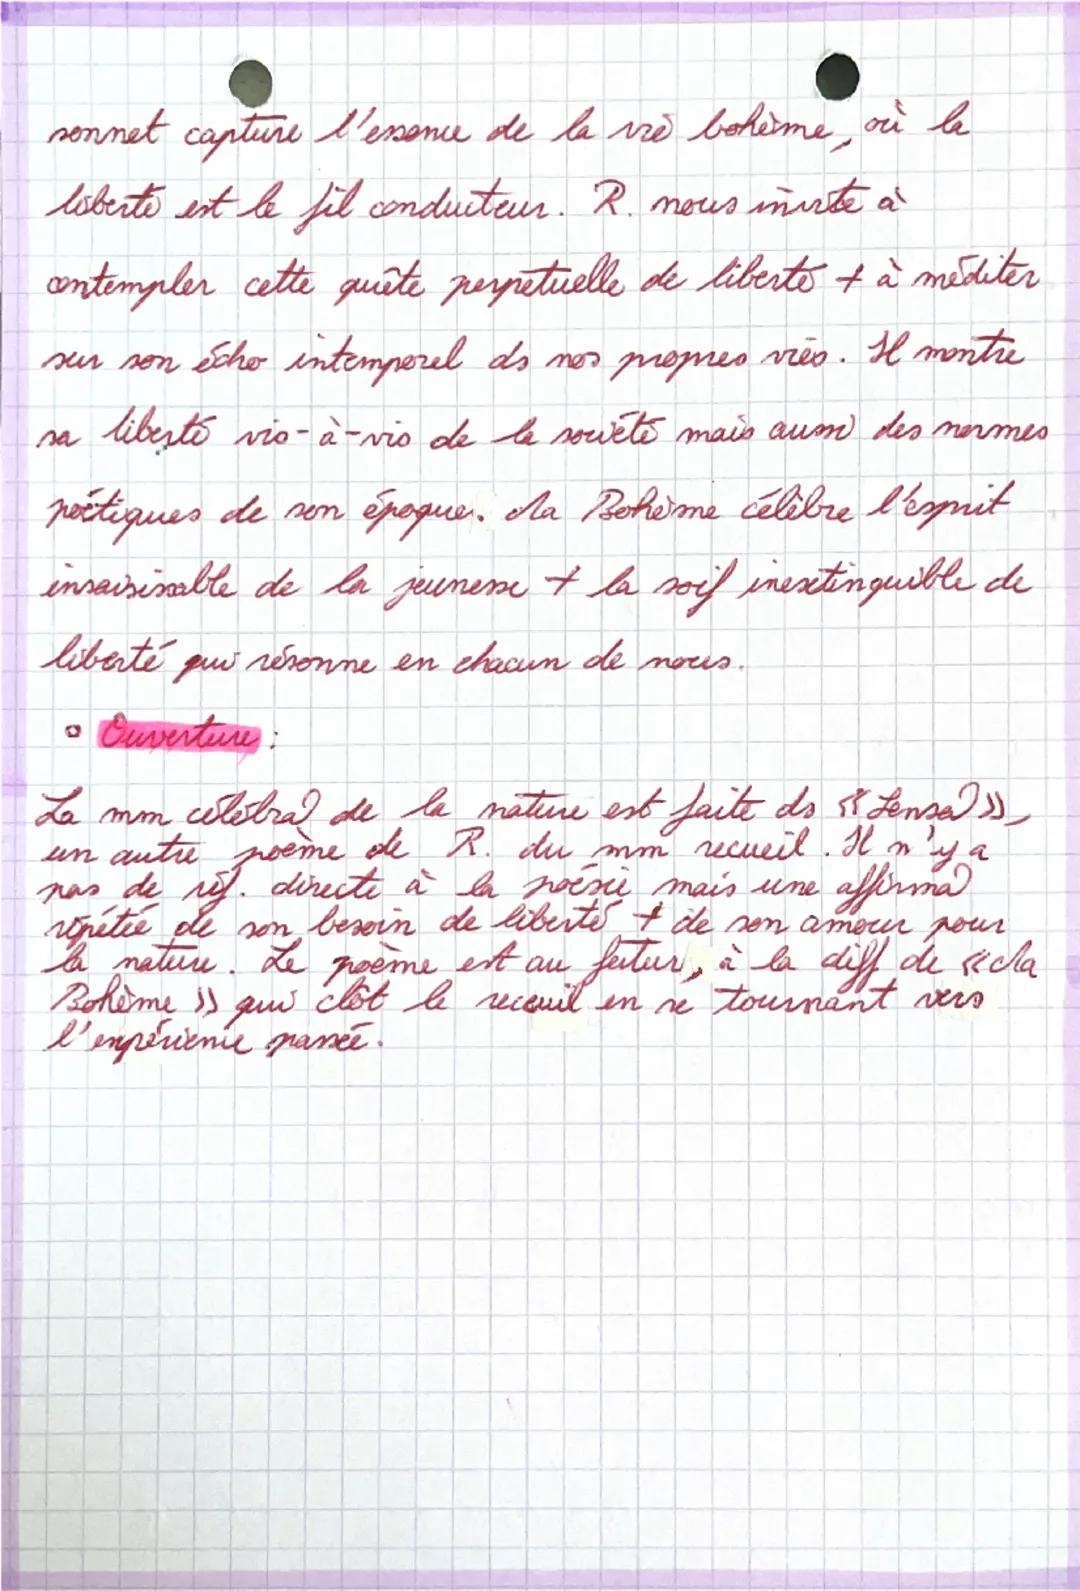 sonnet capture l'essence de la vie bohème, où la
liberté est le fil conducteur. R. nous invite à
contempler cette quête perpétuelle de liberté + à méditer
sur son écho intemporel ds nos propres vies. Il montre
sa liberté vis-à-vis de la société mais aussi des normes
poétiques de son époque. Ma Bohème célèbre l'esprit
insaisissable de la jeunesse + la soif inextinguible de
liberté qui résonne en chacun de nous.
Ouverture :
La mm célébra° de la nature est faite ds «Sensa°»,
un autre poème de R. du mm recueil. Il n'y a
pas de réf. directe à la poésie mais une affirma°
répétée de son besoin de liberté + de son amour pour
la nature. Le poème est au futur, à la diff de «Ma
Bohème» qui clôt le receuil en se tournant vers
l'expérience passée.